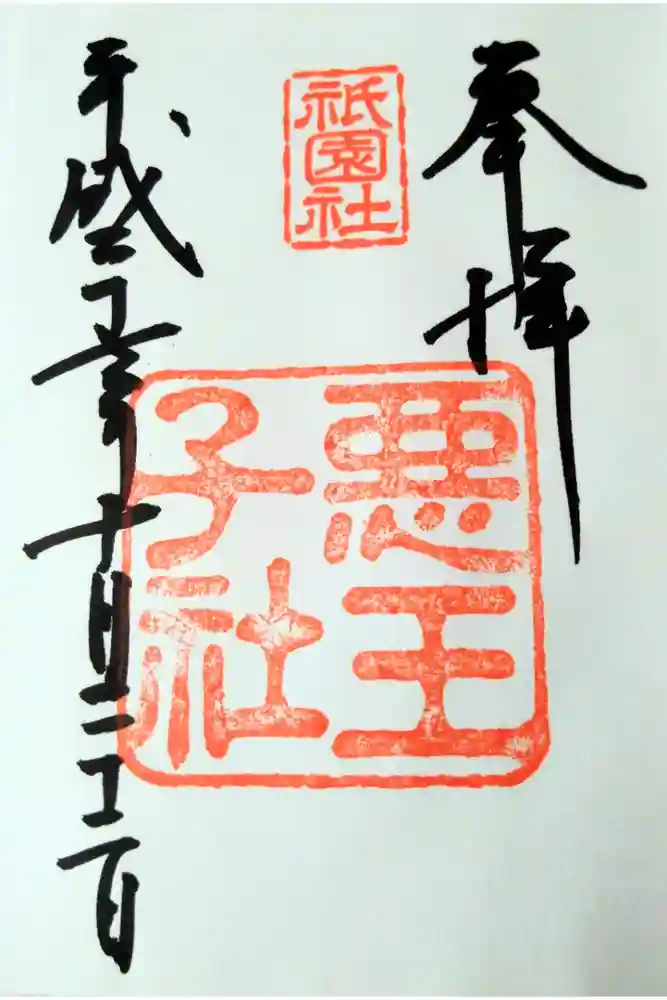 奉拝
祇園社
悪王子社
平成
年十月二
日